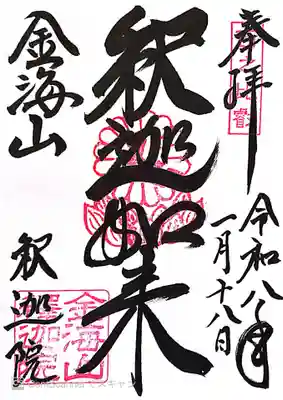 奉拝
令和八年
一月十八日
釈迦如来
金海山
釈迦院
金海山
釈迦院
でスキャン